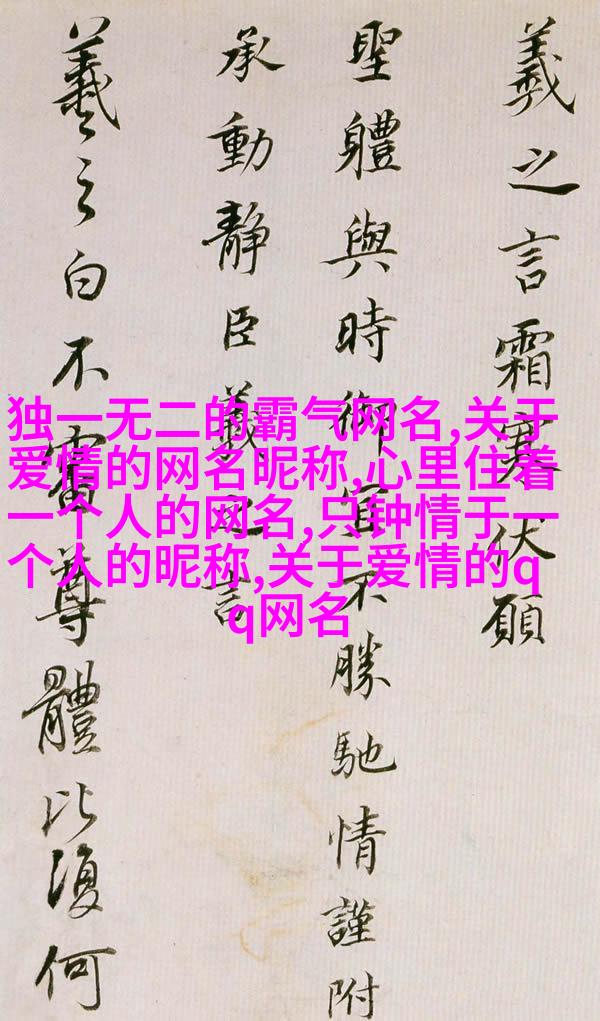 羲之言霜寒伏願
聖體與時御宜不勝馳情謹附
承動靜臣羲之言
羲之白不審尊體比復何
独一无二的霸气网名,关于
爱情的网名昵称,心里住着
一个人的网名,只钟情于一
个人的昵称,关于爱情的q
q网名